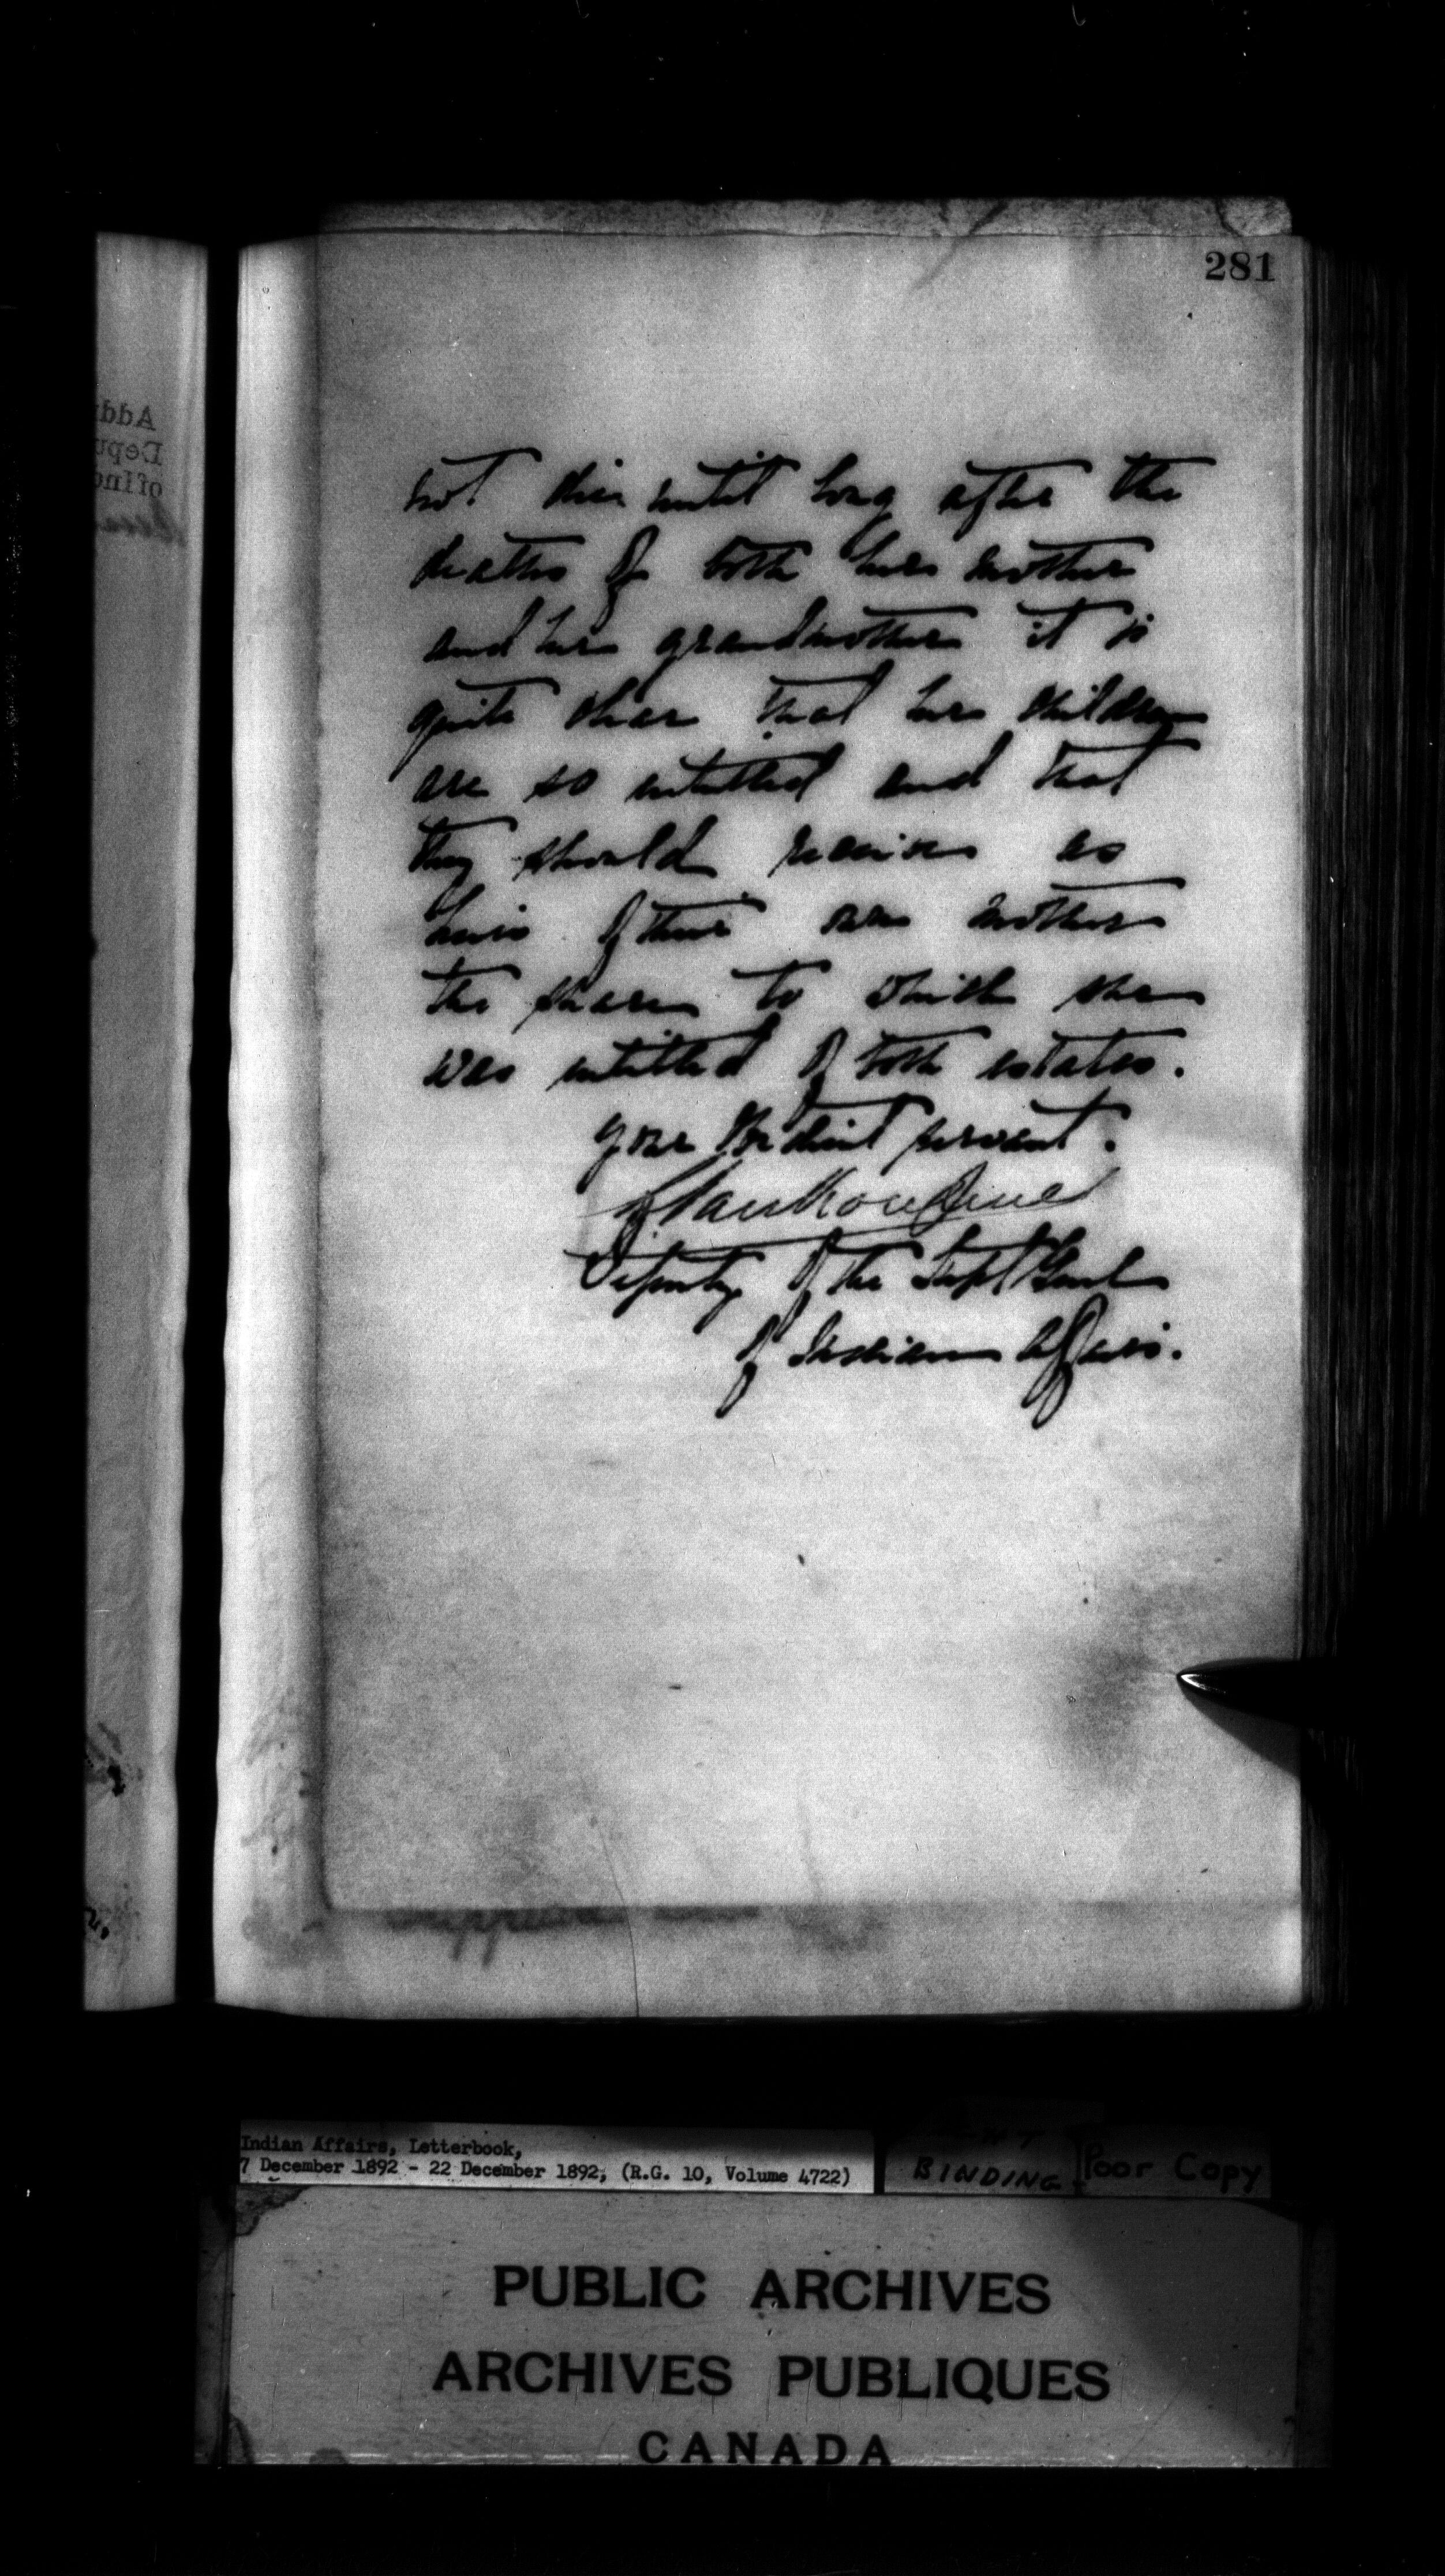 281
not die until long after the
deaths of both her mother
and her grandmother it is
quite clear that her children
are so entitled and that
they should receive as
heirs of their own mother
the share to which she
was entitled of both estates.
your obedient servant.
L Vankoughnet
Deputy of the Supt Genl
of Indian Affairs.
Indian Affairs, Letterbook,
7 December 1892 - 22 December 1892, (R.G. 10, Volume 4722)
BINDING
Poor Copy
PUBLIC ARCHIVES
ARCHIVES PUBLIQUES
CANADA